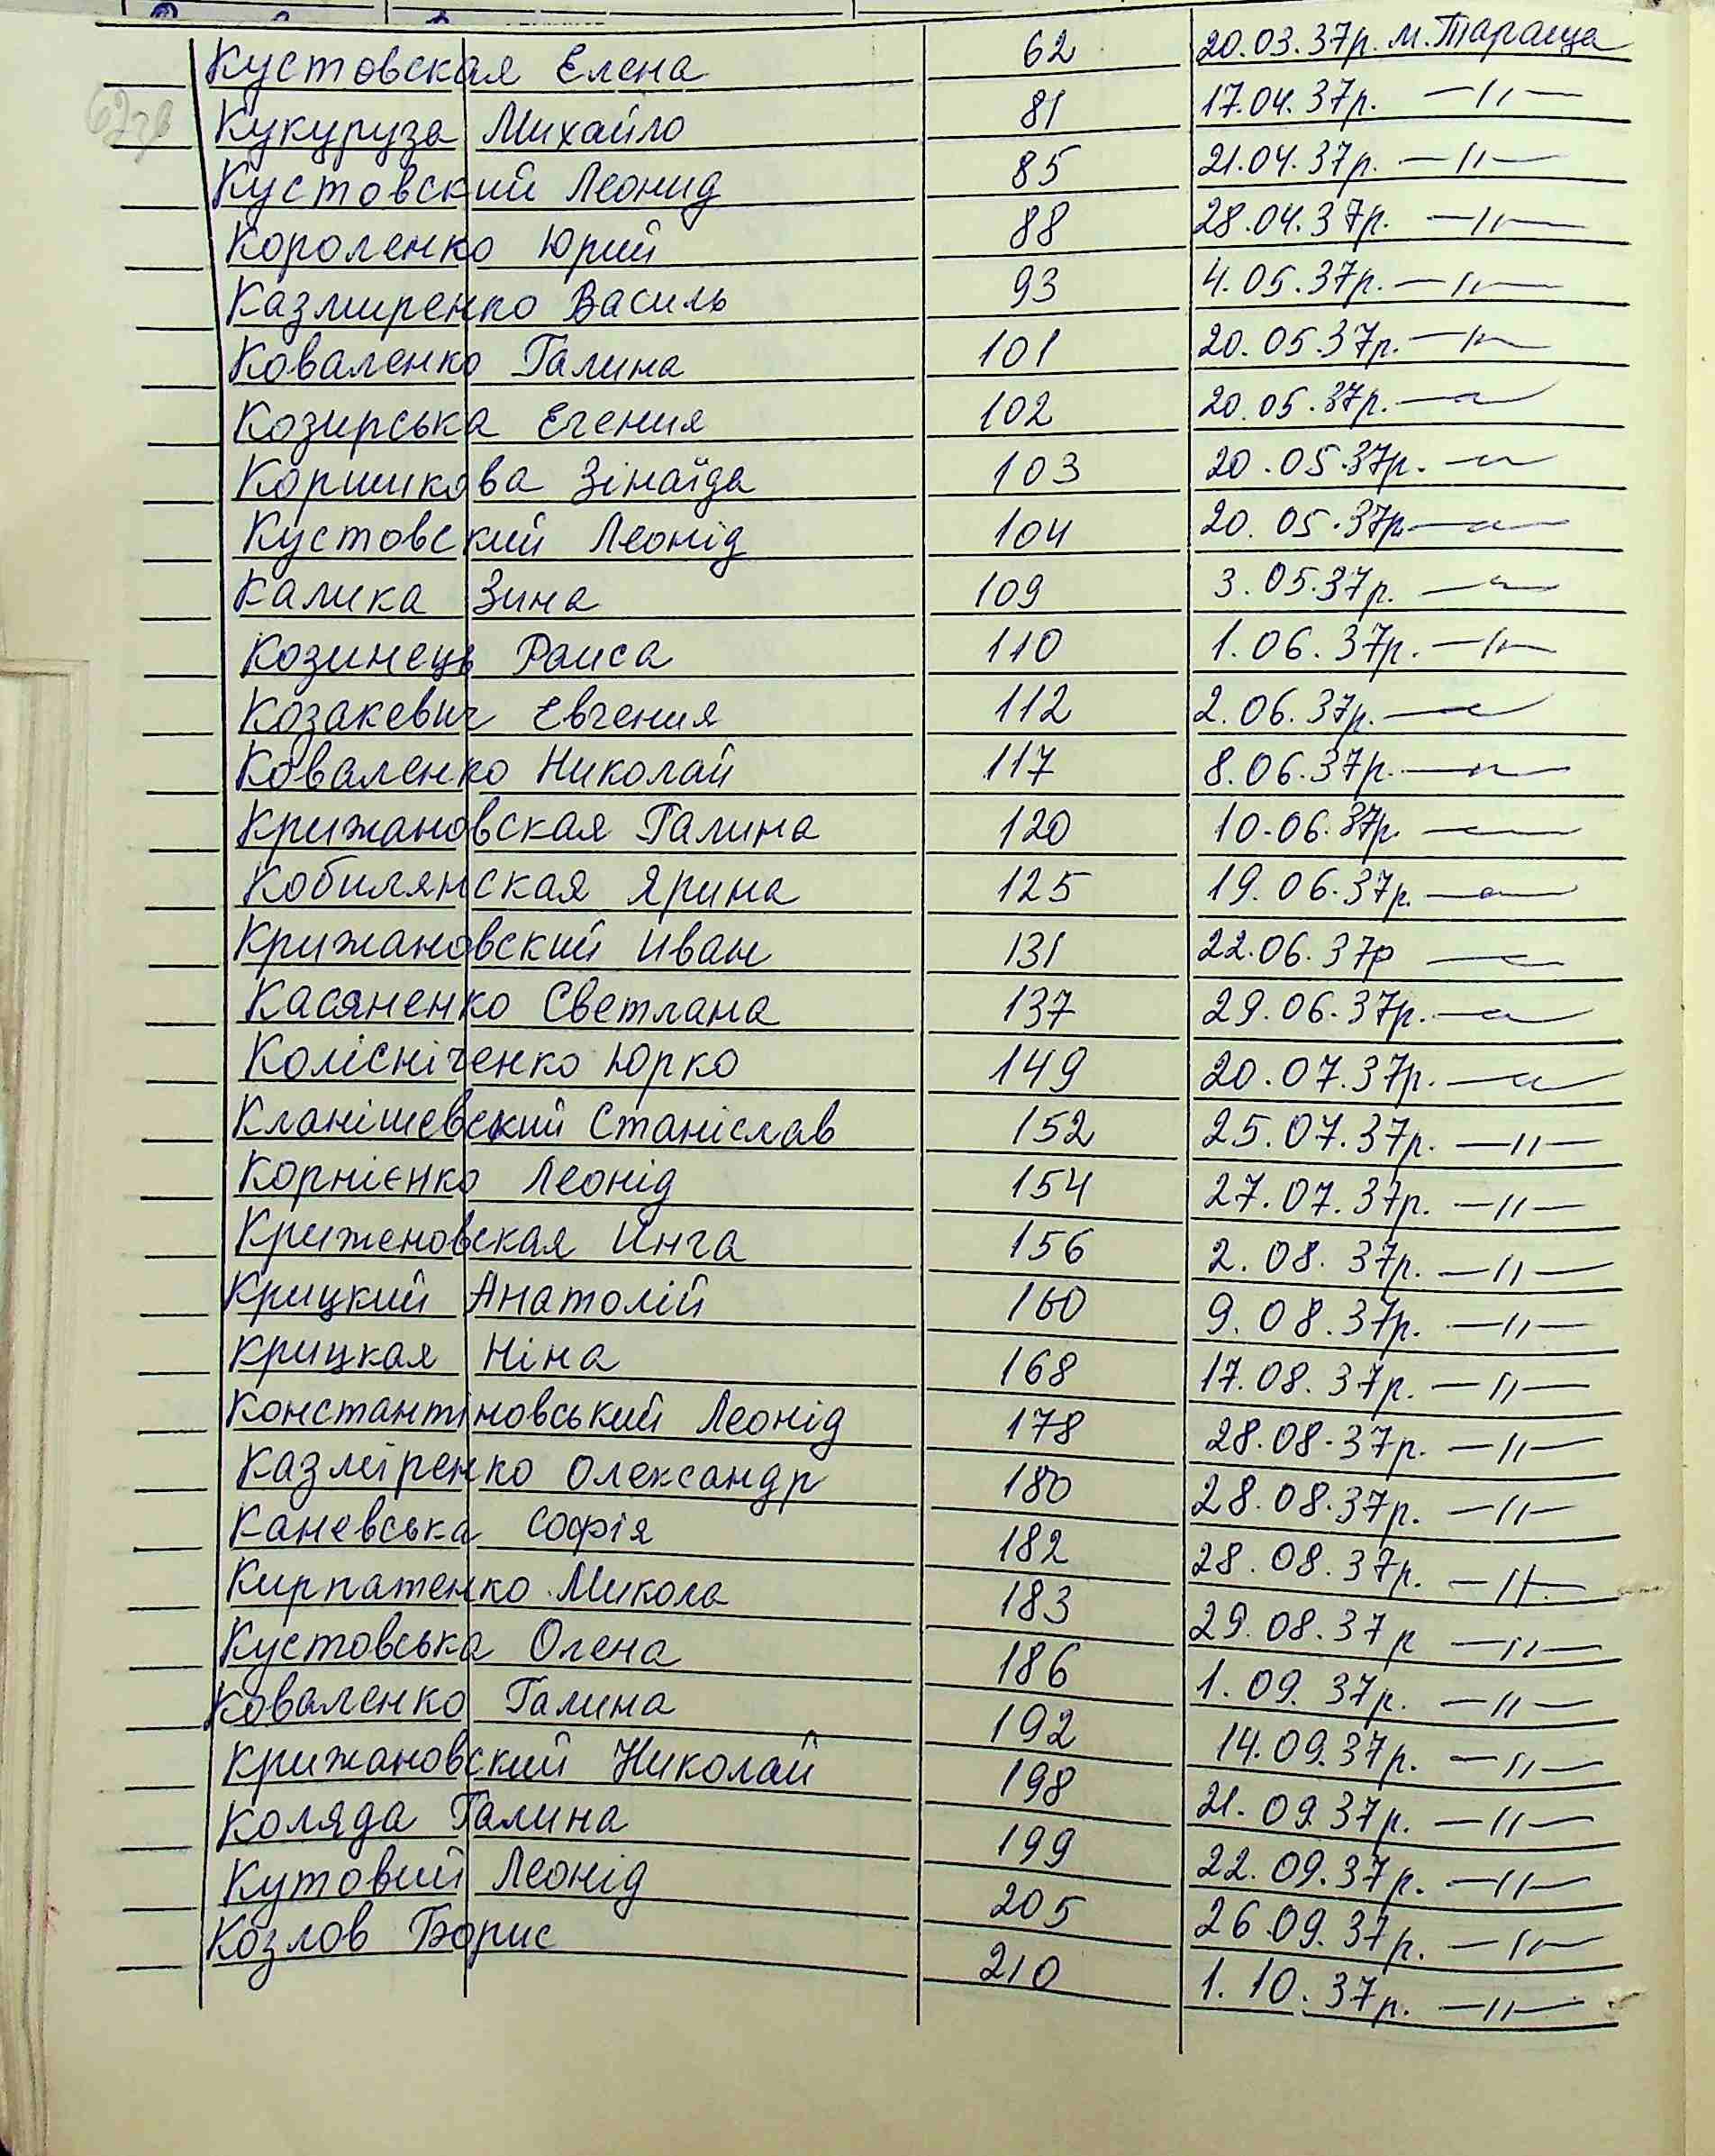 Кустовская Елена 62 20.03.37р. м. Тараща
Кукуруза Михайло 81 17.04.37р. —//—
Кустовский Леонид 85 21.04.37р. —//—
Короленко Юрий 88 28.04.37р. —//—
Казмиренко Василь 93 4.05.37р. —//—
Коваленко Галина 101 20.05.37р. —//—
Козирська Евгения 102 20.05.37р. —//—
Коршикова Зінаїда 103 20.05.37р. —//—
Кустовский Леонід 104 20.05.37р —//—
Калика Зина 109 3.05.37р. —//—
Козинець Раиса 110 1.06.37р. —//—
Козакевич Евгения 112 2.06.37р. —//—
Коваленко Николай 117 8.06.37р. —//—
Крижановская Галина 120 10.06.37р. —//—
Кобилянская Ярина 125 19.06.37р. —//—
Крижановский Иван 131 22.06.37р —//—
Касяненко Светлана 137 29.06.37р. —//—
Колісніченко Юрко 149 20.07.37р. —//—
Кланішевский Станіслав 152 25.07.37р. —//—
Корнієнко Леонід 154 27.07.37р. —//—
Криженовская Инга 156 2.08.37р. —//—
Крицкий Анатолій 160 9.08.37р. —//—
Крицкая Ніна 168 17.08.37р. —//—
Константіновський Леонід 178 28.08.37р. —//—
Казміренко Олександр 180 28.08.37р. —//—
Каневська Софія 182 28.08.37р. —//—
Кирпатенко Микола 183 29.08.37р —//—
Кустовська Олена 186 1.09.37р. —//—
Коваленко Галина 192 14.09.37р. —//—
Крижановский Николай 198 21.09.37р. —//—
Коляда Галина 199 22.09.37р. —//—
Кутовий Леонід 205 26.09.37р. —//—
Козлов Борис 210 1.10.37р. —//—